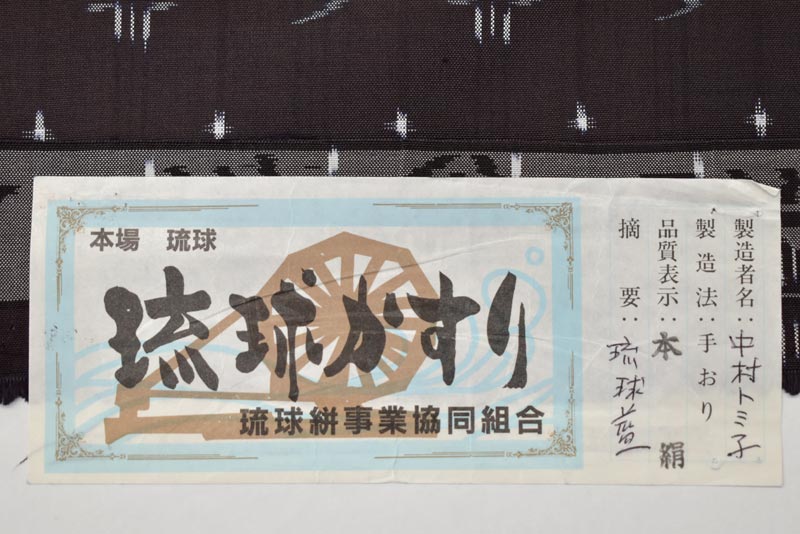 本場 琉球
琉球かすり
琉球絣事業協同組合
製造者名：中村トミ子
製造法：手おり
品質表示：本絹
摘要：琉球藍